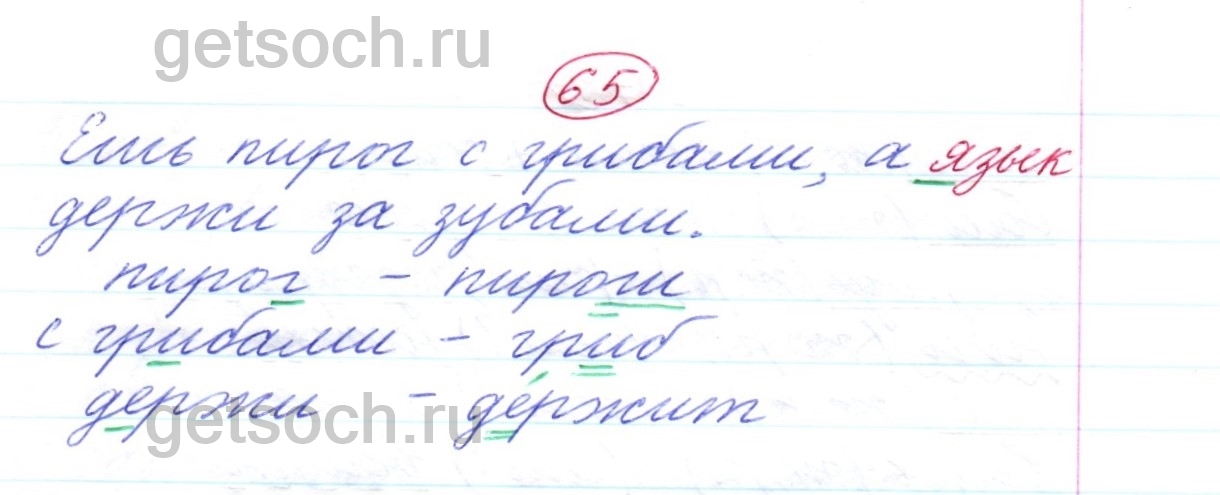 getsoch.ru
65
Ешь пирог с грибами, а язык
держи за зубами.
пирог - пироги
с грибами - гриб
держи - де́ржит
getsoch.ru